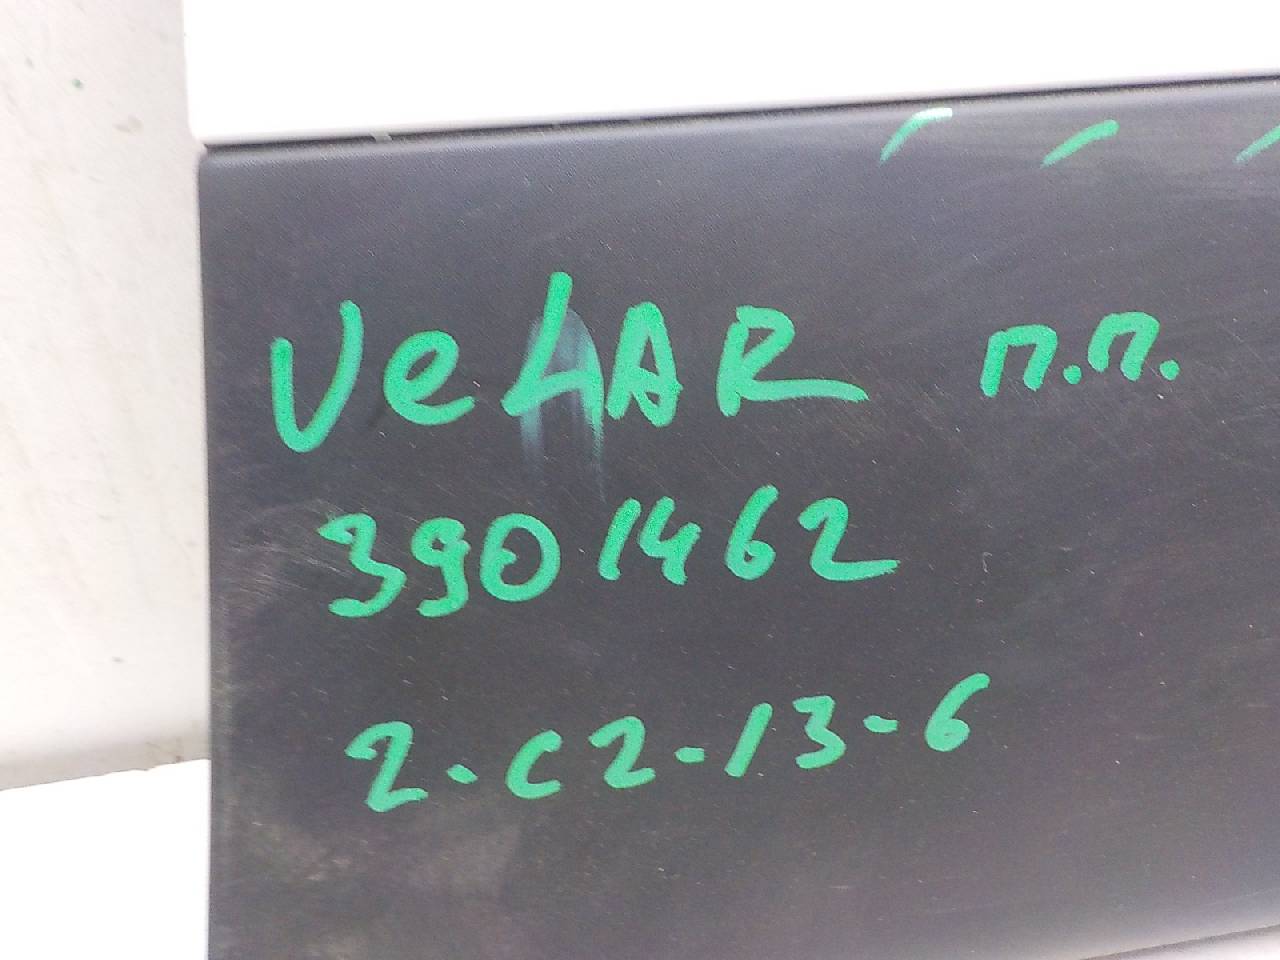 VeLAR п.п.
3901462
2-c2-13-6